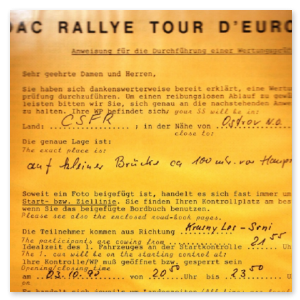 DAC RALLYE TOUR D'EURO
Anweisung für die Durchführung einer Wertungsprüf
Sehr geehrte Damen und Herren,
Sie haben sich dankenswerterweise bereit erklärt, eine Wertu
prüfung durchzuführen. Um einen reibungslosen Ablauf zu gewä
leisten bitten wir Sie, sich genau an die nachstehenden Anwe
zu halten. Ihre WP befindet sich: your SS will be in:
Land: CSFR ; in der Nähe von Ostrov N.O.
close to:
Die genaue Lage ist:
The exact place is:
auf kleiner Brücke ca 100 m
Soweit ein Foto beigefügt ist, handelt es sich fast immer um
Start- bzw. Ziellinie. Sie finden Ihren Kontrollplatz am bes
wenn Sie das beigefügte Bordbuch benutzen.
Please see also the enclosed road-book pages.
Die Teilnehmer kommen aus Richtung Krasny Les - Seni
The participants are coming from
Idealzeit des 1. Fahrzeuges an der Startkontrolle 21 55 U
The 1. car will be on the starting control at:
Ihre Kontrolle/WP muß geöffnet bzw. gesperrt sein
Opening/closing time
am 03.10.90 von 20 50 Uhr bis 23 50 U